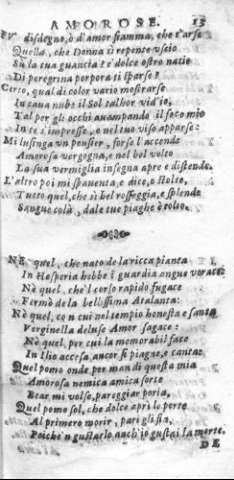 AMOROSE. 13
FV disdegno, ò d'amor fiamma, che t'arse
Quella, che Donna sì repente vscio
Su la tua guancia? e dolce ostro natio
Di peregrina porpora ti sparse?
Certo, qual di color vario mostrarse
In caua nube il Sol talhor vid'io,
Tal per gli occhi auampando il foco mio
In te s'impresse, e nel tuo viso apparse:
Mi lusinga vn pensier, forse l'accende
Amorosa vergogna, e nel bel volto
La sua vermiglia insegna apre e distende.
L'altro poi mi spauenta, e dice, o stolto,
Tutto quel, che sì bel rosseggia, e splende
Sangue colà, dale tue piaghe è tolto.
NE quel, che nato de la ricca pianta
In Hesperia hebbe in guardia angue vorace:
Nè quel, che'l corso rapido fugace
Fermò de la bellissima Atalanta:
Nè quel, con cui nel tempio honesta e santa
Verginella deluse Amor sagace:
Nè quel, per cui la memorabil face
In Ilio accesa, ancor si piagne, e canta:
Quel pomo onde per man di questa mia
Amorosa nemica amica sorte
Bear mi volse, pareggiar poria,
Quel pomo sol, che dolce aprì le porte
Al primero morir, pari gli sia,
Poiche'n gustarlo anch'io gustai la morte.
DE